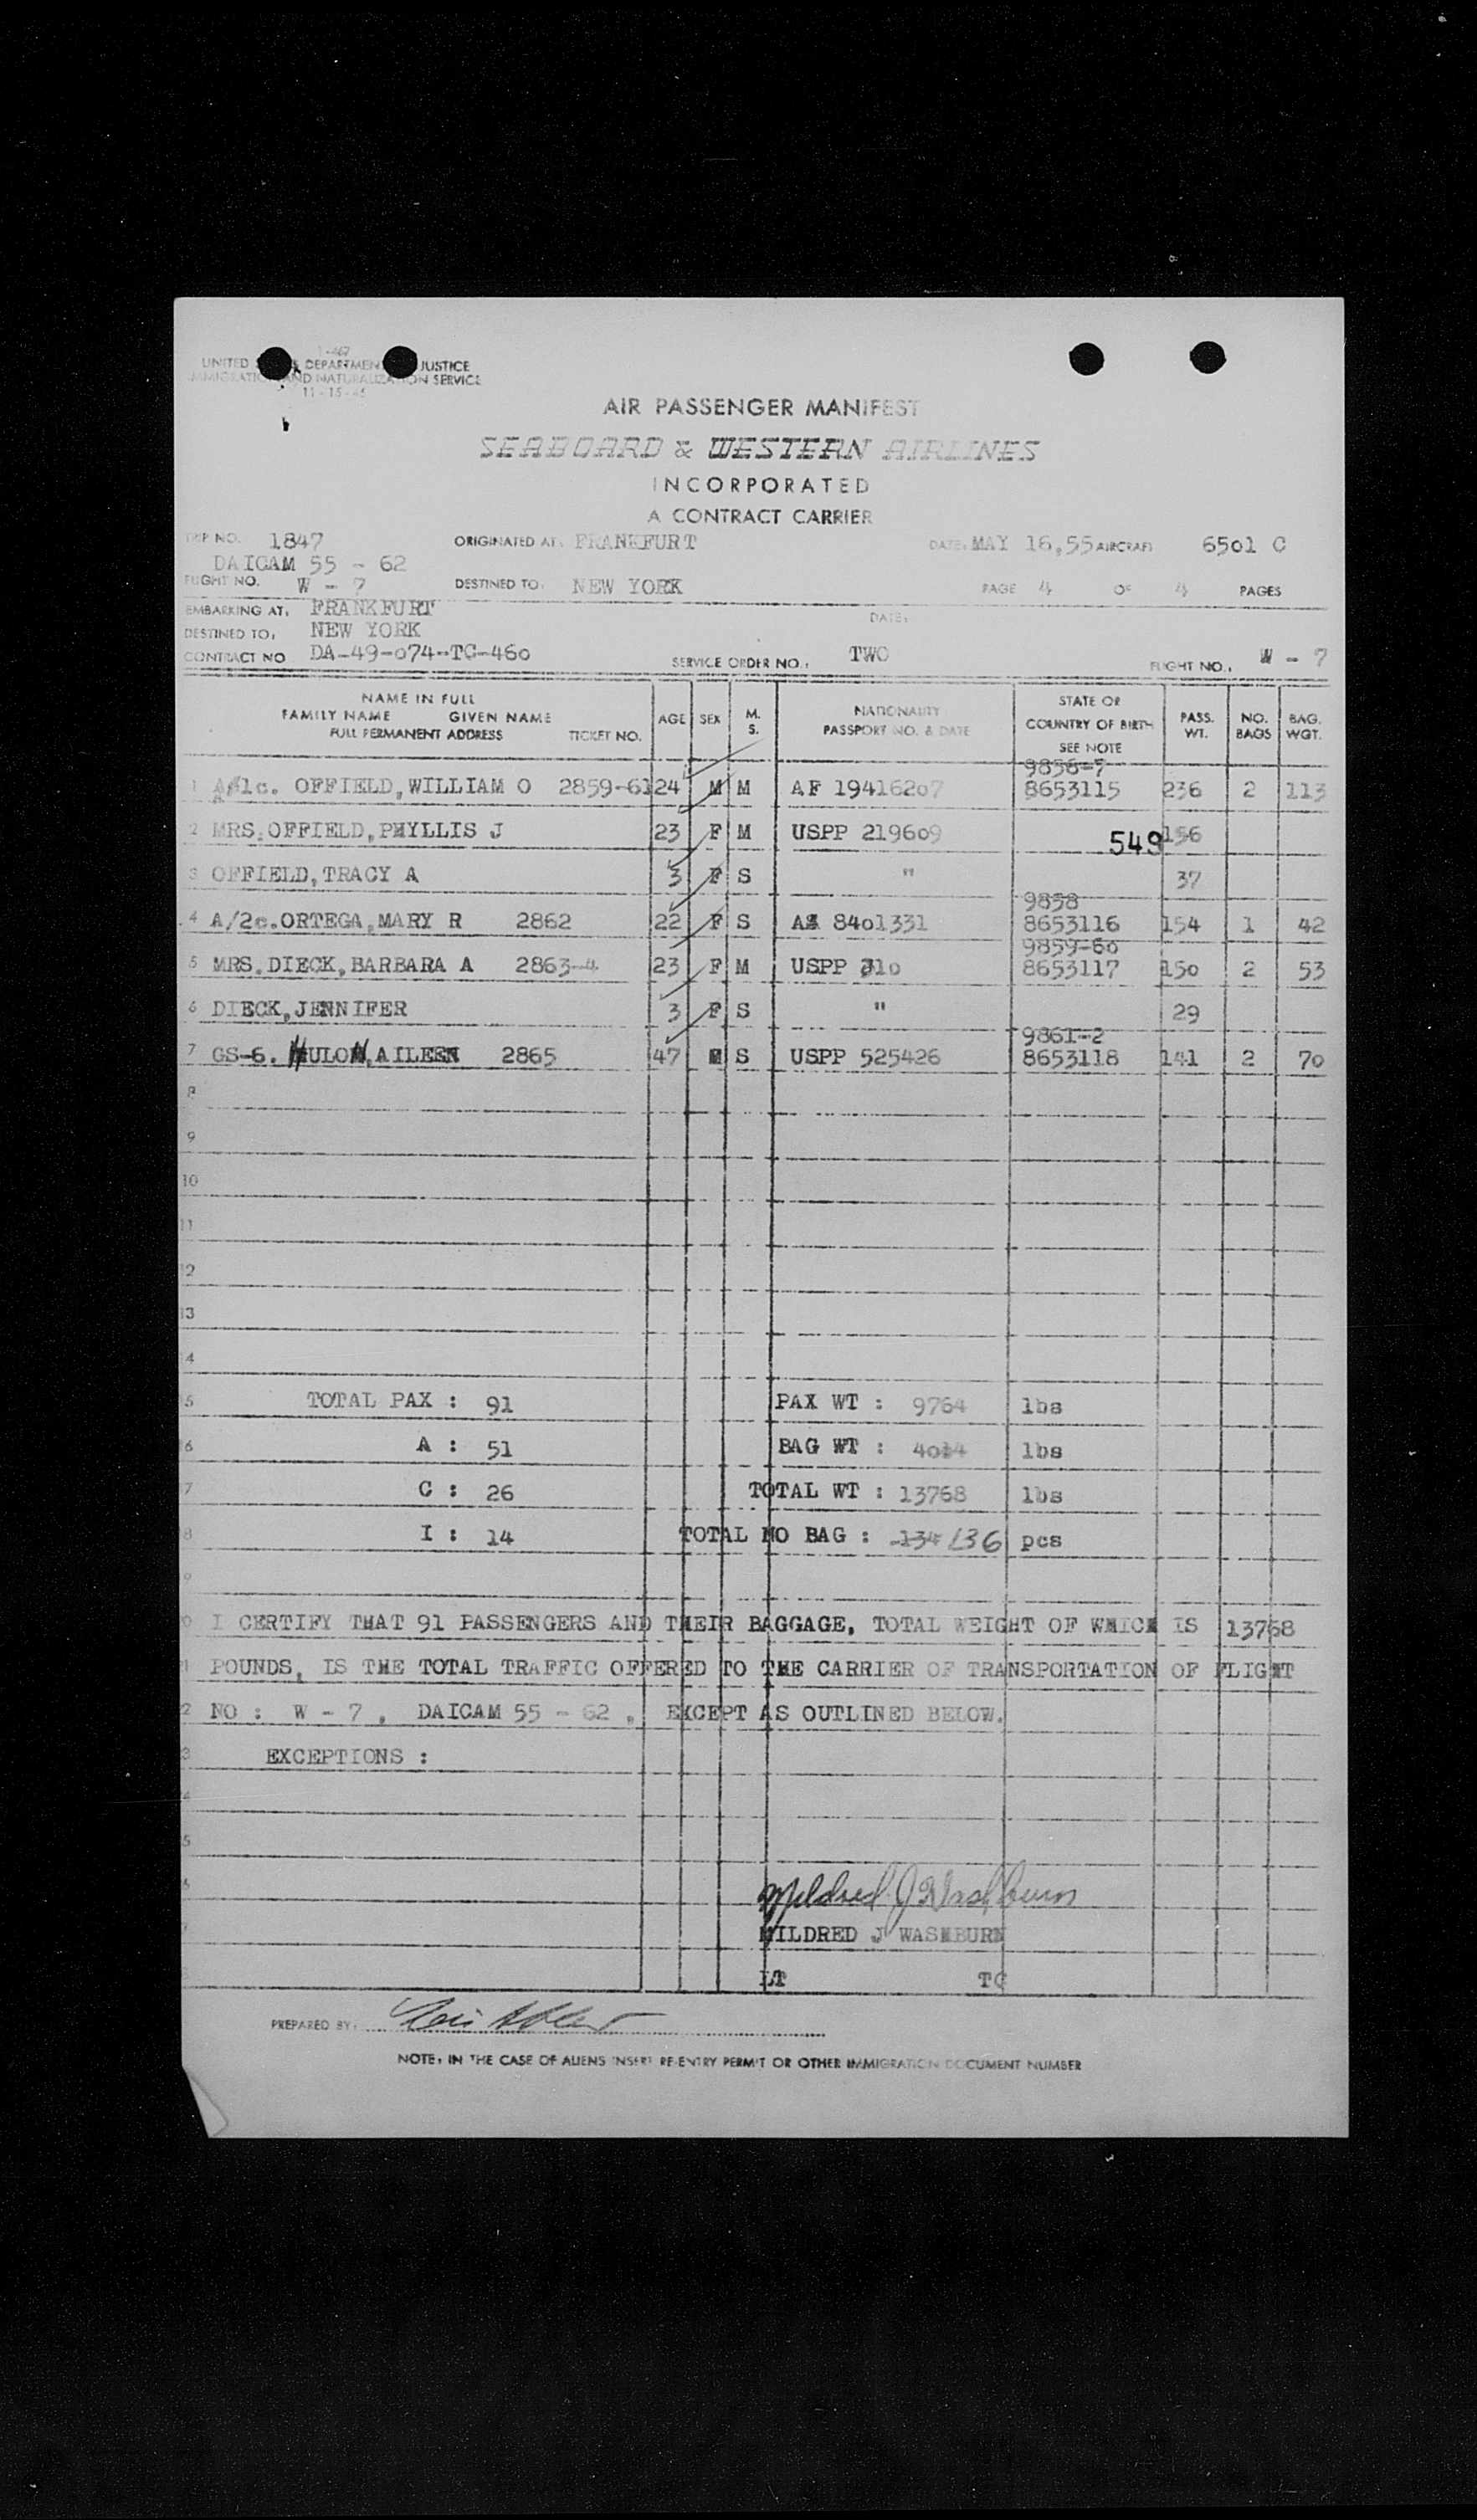 UNITED DEPARTMEN JUSTICE
AND NATURALIZATION SERVICE
11-15-45
AIR PASSENGER MANIFEST
SEABOARD & WESTERN AIRLINES
INCORPORATED
A CONTRACT CARRIER
TRIP NO. 1847 ORIGINATED AT: FRANKFURT DATE: MAY 16,55 AIRCRAFT 6501 C
DAICAM 55 - 62
FLIGHT NO. W - 7 DESTINED TO: NEW YORK PAGE 4 OF 4 PAGES
EMBARKING AT: FRANKFURT DATE:
DESTINED TO: NEW YORK
CONTRACT NO DA-49-074-TC-460 SERVICE ORDER NO.: TWO FLIGHT NO.: W - 7
NAME IN FULL
FAMILY NAME GIVEN NAME
FULL PERMANENT ADDRESS TICKET NO. AGE SEX M. S. NATIONALITY PASSPORT NO. & DATE STATE OF COUNTRY OF BIRTH SEE NOTE PASS. WT. NO. BAGS BAG. WGT.
9856-7
1 A/1c. OFFIELD,WILLIAM O 2859-61 24 M M AF 19416207 8653115 236 2 113
2 MRS.OFFIELD,PHYLLIS J 23 F M USPP 219609 549 156
3 OFFIELD,TRACY A 3 F S " 37
9858
4 A/2c.ORTEGA,MARY R 2862 22 F S AA 8401331 8653116 154 1 42
9859-60
5 MRS.DIECK,BARBARA A 2863-4 23 F M USPP 310 8653117 150 2 53
6 DIECK,JENNIFER 3 F S " 29
9861-2
7 GS-6. AILEEN 2865 47 S USPP 525426 8653118 141 2 70
8
9
10
11
12
13
14
15 TOTAL PAX : 91 PAX WT : 9764 lbs
16 A : 51 BAG WT : lbs
17 C : 26 TOTAL WT : 13768 lbs
18 I : 14 TOTAL NO BAG : 134 136 pcs
9
I CERTIFY THAT 91 PASSENGERS AND THEIR BAGGAGE, TOTAL WEIGHT OF WHICH IS 13768
POUNDS, IS THE TOTAL TRAFFIC OFFERED TO THE CARRIER OF TRANSPORTATION OF FLIGHT
NO : W - 7 , DAICAM 55 - 62 , EXCEPT AS OUTLINED BELOW.
EXCEPTIONS :
Mildred J Washburn
MILDRED J WASHBURN
LT TC
PREPARED BY:
NOTE: IN THE CASE OF ALIENS INSERT RE-ENTRY PERMIT OR OTHER IMMIGRATION DOCUMENT NUMBER